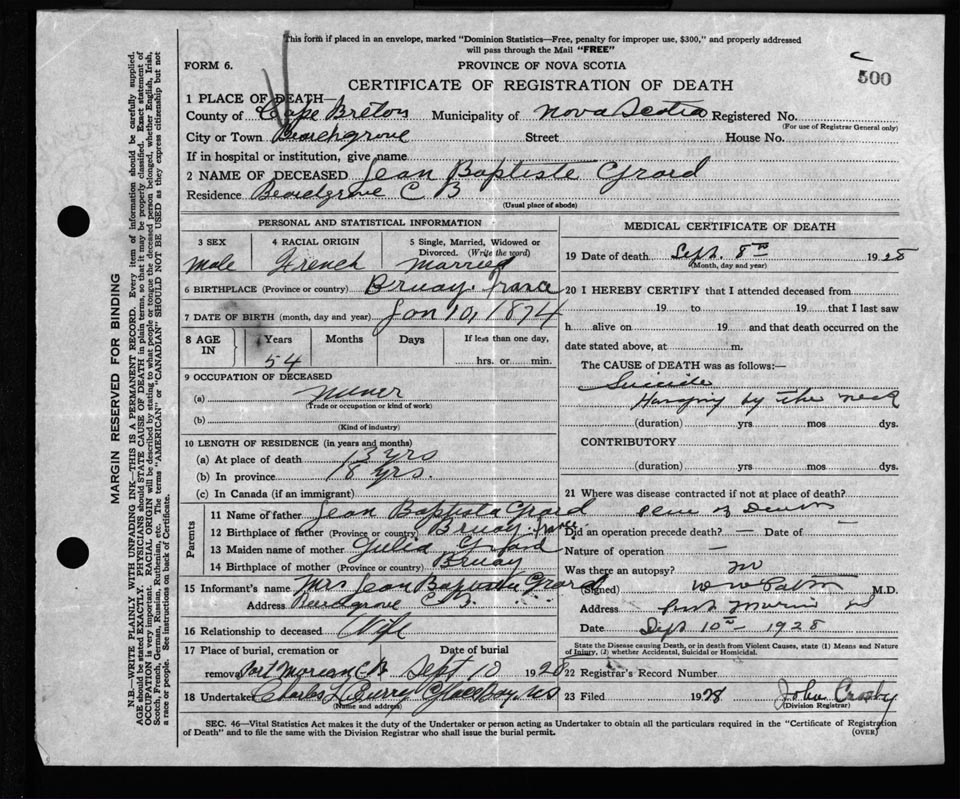 This form if placed in an envelope, marked "Dominion Statistics—Free, penalty for improper use, $300," and properly addressed
will pass through the Mail "FREE"
FORM 6.
PROVINCE OF NOVA SCOTIA
500
CERTIFICATE OF REGISTRATION OF DEATH
1 PLACE OF DEATH—
County of Cape Breton Municipality of Nova Scotia Registered No.
(For use of Registrar General only)
City or Town Street House No.
If in hospital or institution, give name
2 NAME OF DECEASED Jean Baptiste Grard
Residence C B
(Usual place of abode)
PERSONAL AND STATISTICAL INFORMATION
3 SEX 4 RACIAL ORIGIN 5 Single, Married, Widowed or
Divorced. (Write the word)
Male French Married
6 BIRTHPLACE (Province or country) Bruay. France
7 DATE OF BIRTH (month, day and year) Jan 10, 1874
8 AGE IN Years Months Days If less than one day,
54 hrs. or min.
9 OCCUPATION OF DECEASED
(a) Miner
(Trade or occupation or kind of work)
(b)
(Kind of industry)
10 LENGTH OF RESIDENCE (in years and months)
(a) At place of death 13 yrs
(b) In province 18 yrs.
(c) In Canada (if an immigrant)
Parents
11 Name of father Jean Baptista Grard
12 Birthplace of father (Province or country) Bruay. France
13 Maiden name of mother Julia
14 Birthplace of mother (Province or country) Bruay
15 Informant's name Mrs Jean Baptista Grard
Address C B.
16 Relationship to deceased Wife
17 Place of burial, cremation or Date of burial
removal Port Morien C B Sept 10 1928
18 Undertaker Charles L Curry Glace Bay, NS
(Name and address)
MEDICAL CERTIFICATE OF DEATH
19 Date of death Sept. 8th 1928
(Month, day and year)
20 I HEREBY CERTIFY that I attended deceased from
19 to 19 that I last saw
h alive on 19 and that death occurred on the
date stated above, at m.
The CAUSE OF DEATH was as follows:—
Suicide
Hanging by the neck
(duration) yrs mos dys.
CONTRIBUTORY
(duration) yrs mos dys.
21 Where was disease contracted if not at place of death?
Place of Death
Did an operation precede death? — Date of —
Nature of operation —
Was there an autopsy? no
(Signed) M.D.
Address Port Morien NS
Date Sept 10th – 1928
State the Disease causing Death, or in death from Violent Causes, state (1) Means and Nature
of Injury, (2) whether Accidental, Suicidal or Homicidal.
22 Registrar's Record Number
23 Filed 1928 John Crosby
(Division Registrar)
SEC. 46—Vital Statistics Act makes it the duty of the Undertaker or person acting as Undertaker to obtain all the particulars required in the "Certificate of Registration
of Death" and to file the same with the Division Registrar who shall issue the burial permit.
(OVER)
MARGIN RESERVED FOR BINDING
N.B.—WRITE PLAINLY WITH UNFADING INK—THIS IS A PERMANENT RECORD. Every item of information should be carefully supplied.
AGE should be stated EXACTLY. PHYSICIANS should STATE CAUSE OF DEATH in plain terms, so that it may be properly classified. Exact statement of
OCCUPATION is very important. RACIAL ORIGIN will be described by stating to what people or tongue the deceased person belonged, whether English, Irish,
Scotch, French, German, Russian, Ruthenian, etc. The terms "AMERICAN" or "CANADIAN" SHOULD NOT BE USED as they express citizenship but not
a race or people. See instructions on back of Certificate.